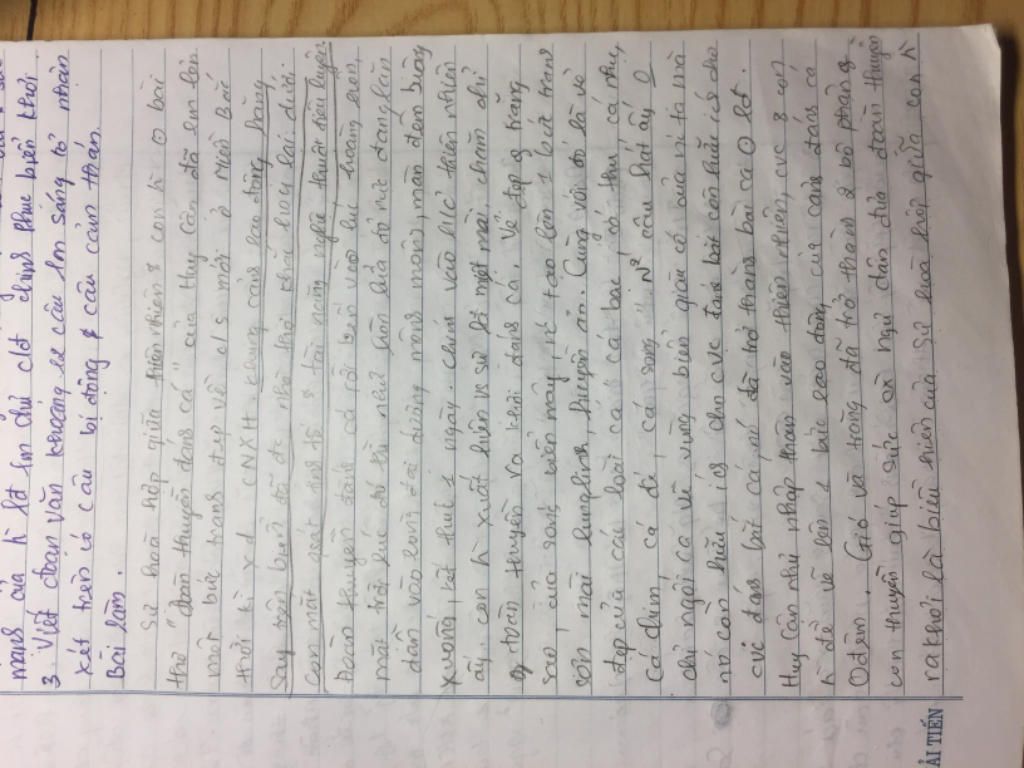 mạnh của h lđ làm chủ c/đ chinh phục biển khơi
3. Viết đoạn văn khoảng 12 câu làm sáng tỏ nhận
xét trên có câu bị động & câu cảm thán.
Bài làm.
Sự hoà hợp giữa thiên nhiên & con h ở bài
thơ "đoàn thuyền đánh cá" của Huy Cận đã em lên
một bức tranh đẹp về c/s mới ở miền bắc
thời kì xd CNXH. Khung cảnh lao động hăng
say trên biển đã đc nhà thơ khắc hoạ lại dưới
con mắt quan sát & tài năng nghệ thuật điêu luyện.
Đoàn thuyền đánh cá rời bến vào lúc hoàng hôn,
mặt trời lúc đó như hòn lửa đỏ rực đang lặn
dần vào lòng đại dương mênh mông, màn đêm buông
xuống, kết thúc 1 ngày. Chính vào lúc thiên nhiên
ấy con h xuất hiện vs sự lđ miệt mài, chăm chỉ
đoàn thuyền ra khơi đánh cá. Vẻ đẹp of trăng
sao, của sóng biển mây, gió tạo lên 1 bức tranh
sơn mài lung linh, huyền ảo. Cùng với đó là vẻ
đẹp của các loài cá, các loài cá bài đó thu, cá nhụ,
cá chim, cá đé, cá song. N² câu hát ấy ko
chỉ ngợi ca về vùng biển giàu có của nc ta mà
nó còn hữu ích cho cv đánh bắt còn hữu ích cho
cv đánh bắt cá nó đã trở thành bài ca lđ.
Huy Cận như nhập thân vào thiên nhiên, cv & con
h để vẽ lên 1 bức lao động của cảnh đánh cá
đêm. Gió và trăng đã trở thành 2 bộ phận of
con thuyền giúp sức cho ngư dân đưa đoàn thuyền
ra khơi là biểu hiện của sự hoà hợp giữa con h
ẢI TIẾN